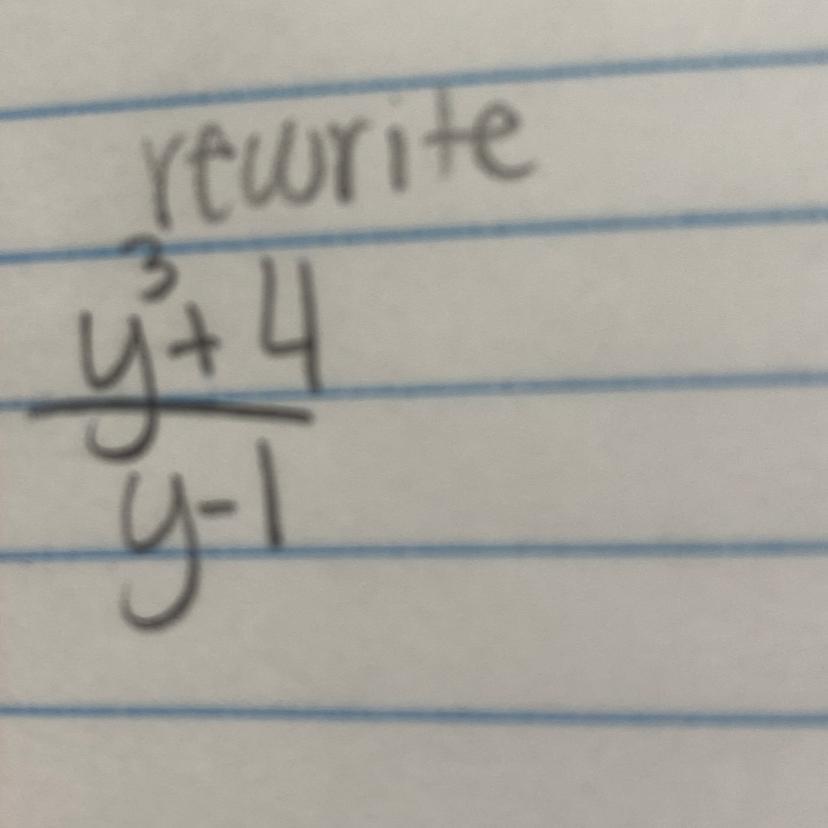 rewrite
y³+4
y-1